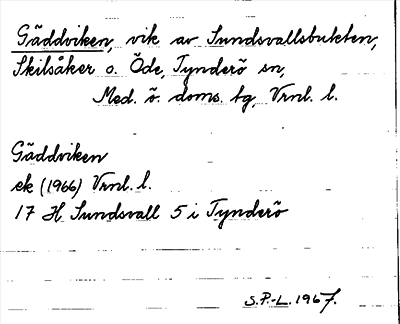 Gäddviken, vik av Sundsvallsbukten,
Skilsåker o. Öde, Tynderö sn,
Med. ö. doms. tg, Vrnl. l.
Gäddviken
ek (1966) Vrnl. l.
17 H Sundsvall 5 i Tynderö
S.P.-L. 1967.